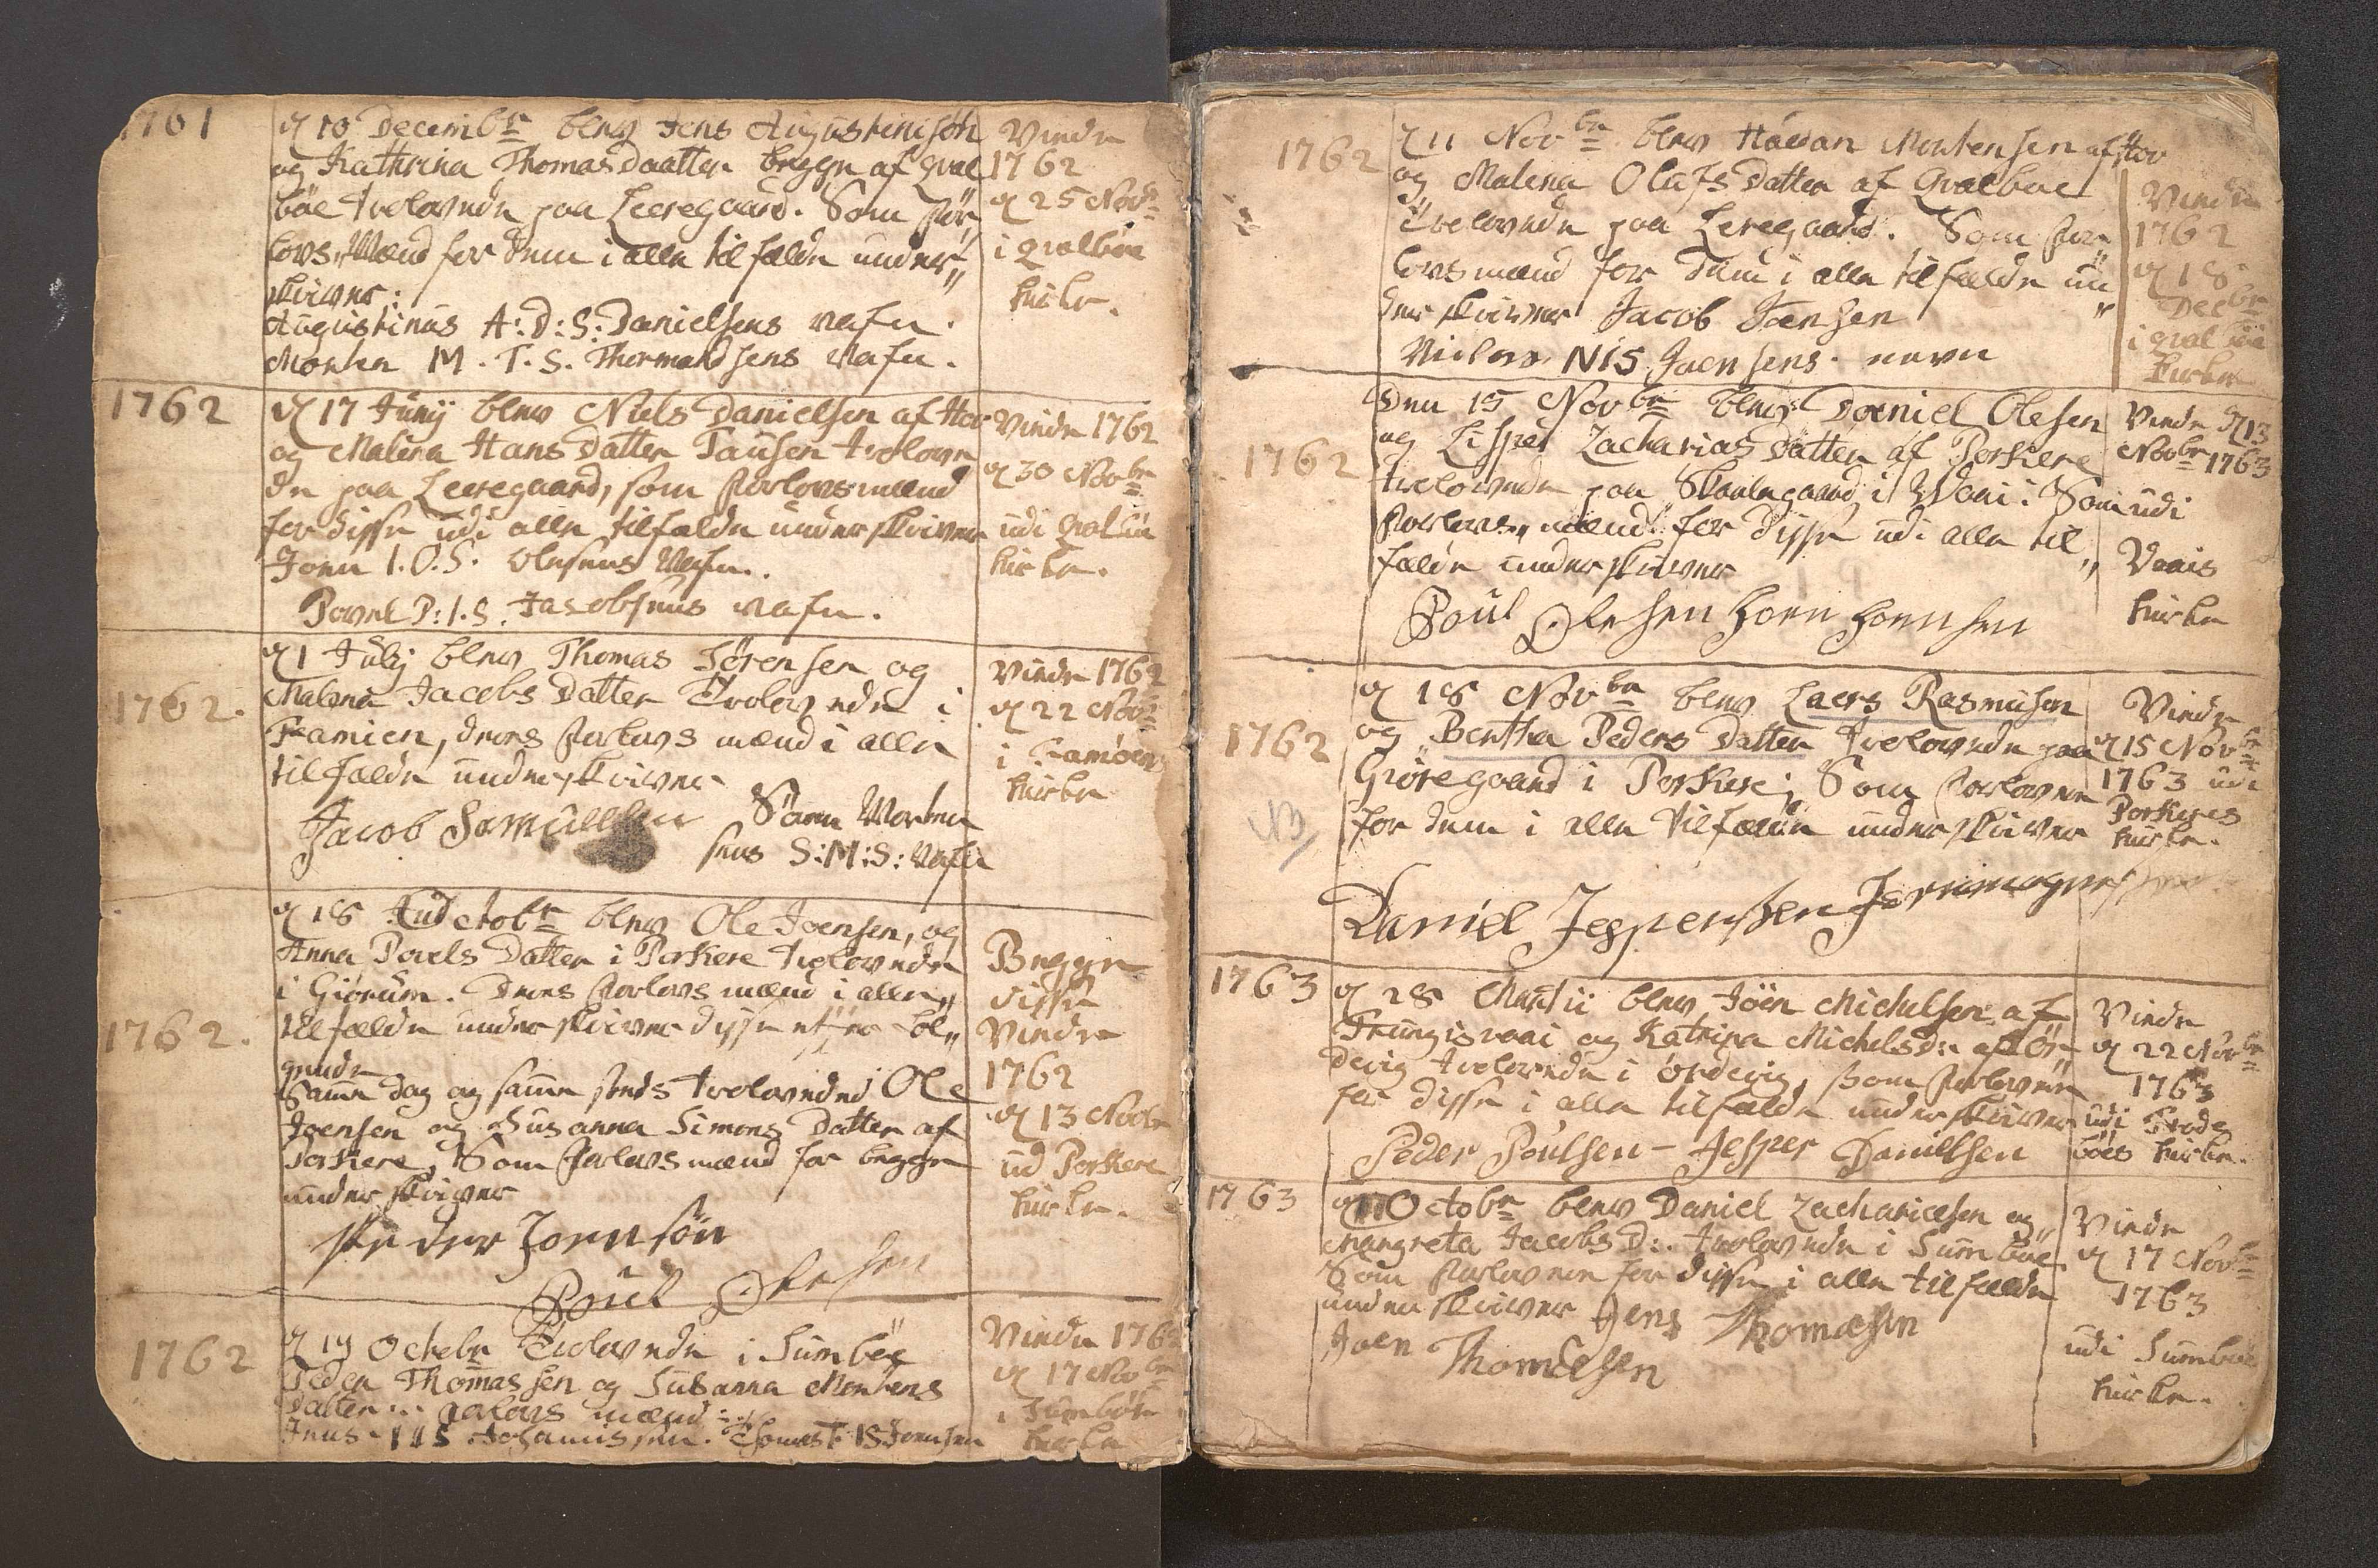 1761
d 10 Decembr blev Jens Augustinisøn
og Kathrina Thomasdaatter begge af qval
böe trolovede paa Leeregaard. Som for„
lovs„Mænd for dem i alle tilfælde under„
skriver:
Augustinus A:D:S: Danielsens nafn.
Morten M.T.S. Thormandsens nafn.
Viede
1762
d 25 Novbr
i qvalböe
kirke.
1762
d 17 Junij blev Niels Danielsen af Hov
og Malena Hans Datter Tausen trolove
de paa Leeregaard, som forlovsmænd
for disse udi alle tilfælde underskriver
Joen I.O.S. Olesens Nafn.
Povel P:I.S. Jacobsens nafn.
Viede 1762
d 30 Novbr
udi qvalböe
kirke.
1762.
d 1 Julij blev Thomas Sørensen og
Malena Jacobs Datter Trolovede i
Famien, deres forlovs mænd i alle
tilfælde underskriver
Jacob Samuelsen Søren Morten
sens S:M:S: Nafn
Viede 1762
d 22 Novbr
i Famöens
kirke
1762.
d 18 octobr blev Ole Joensen, og
Anna Povels Datter i Porkere trolovede
i Giörum. Deres forlovs mænd i alle„
tilfælde underskriver disse efter föl„
gende
Samme dag og samme steds trolovedes Ole
Joensen og Susanna Simons Datter af
Porkere, Som forlovs mænd for begge
underskriver
Peder Joensön
Poul Olesen
Begge
disse
Viede
1762
d 13 Novbr
ud Porkere
kirke.
1762
d 19 Octobr Trolovede i Sumböe
Peder Thomassen og Susanna Mortens
Datter... forlovs mænd
Jens IIS Johannissen. Thomas T IS Joensen
Viede 1762
d 17 Novbr
i Sumböe
kirke
1762
d 11 Novbr blev Haavan Mortensen af Hov
og Malena Olufs Datter af Qvalböe
trolovede paa Leregaard. Som for„
lovsmænd for dem i alle tilfælde un„
derskriver Jacob Joensen
Niclas NIS Joensens navn
Viede
1762
d 18
Decbr
i qvalböe
Kirke
1762
Den 15 Novbr blev Daniel Olesen
og Lisper Zacharias Datter af Porkere
trolovede paa Skaalegaard i Waai. Som
forlovs„mænd for disse udi alle til„
fælde underskriver
Poul Olesen Joen Joensen
Viede d 13
Novbr 1763
udi
Vaais
kirke
1762
d 18 Novbr blev Laers Rasmusen
og Bertha Peders Datter trolovede paa
Giöregaard i Porkere; Som forlovere
for dem i alle tilfælde underskriver
NB
Daniel Jespersen
Viede
d 15 Novbr
1763 udi
Porkeres
kirke.
1763
d 28 Martii blev Jöen Michelsen af
Trungisvaai og Katrina Michelsdr af ör„
devig trolovede i ördevig, som forlovere
for disse i alle tilfælde underskriver
Peder Poulsen - Jesper Danielsen
Viede
d 22 Novbr
1763
udi Frode
böes kirke.
1763
d 11 Octobr blev Daniel Zachariasen og„
Margreta Jacobs D:. trolovede i Sumböe.
Som forlovere for disse i alle tilfælde
underskriver Jens Thomasen
Joen Thomasen
Viede
d 17 Novbr
1763
udi Sumböe
kirke.